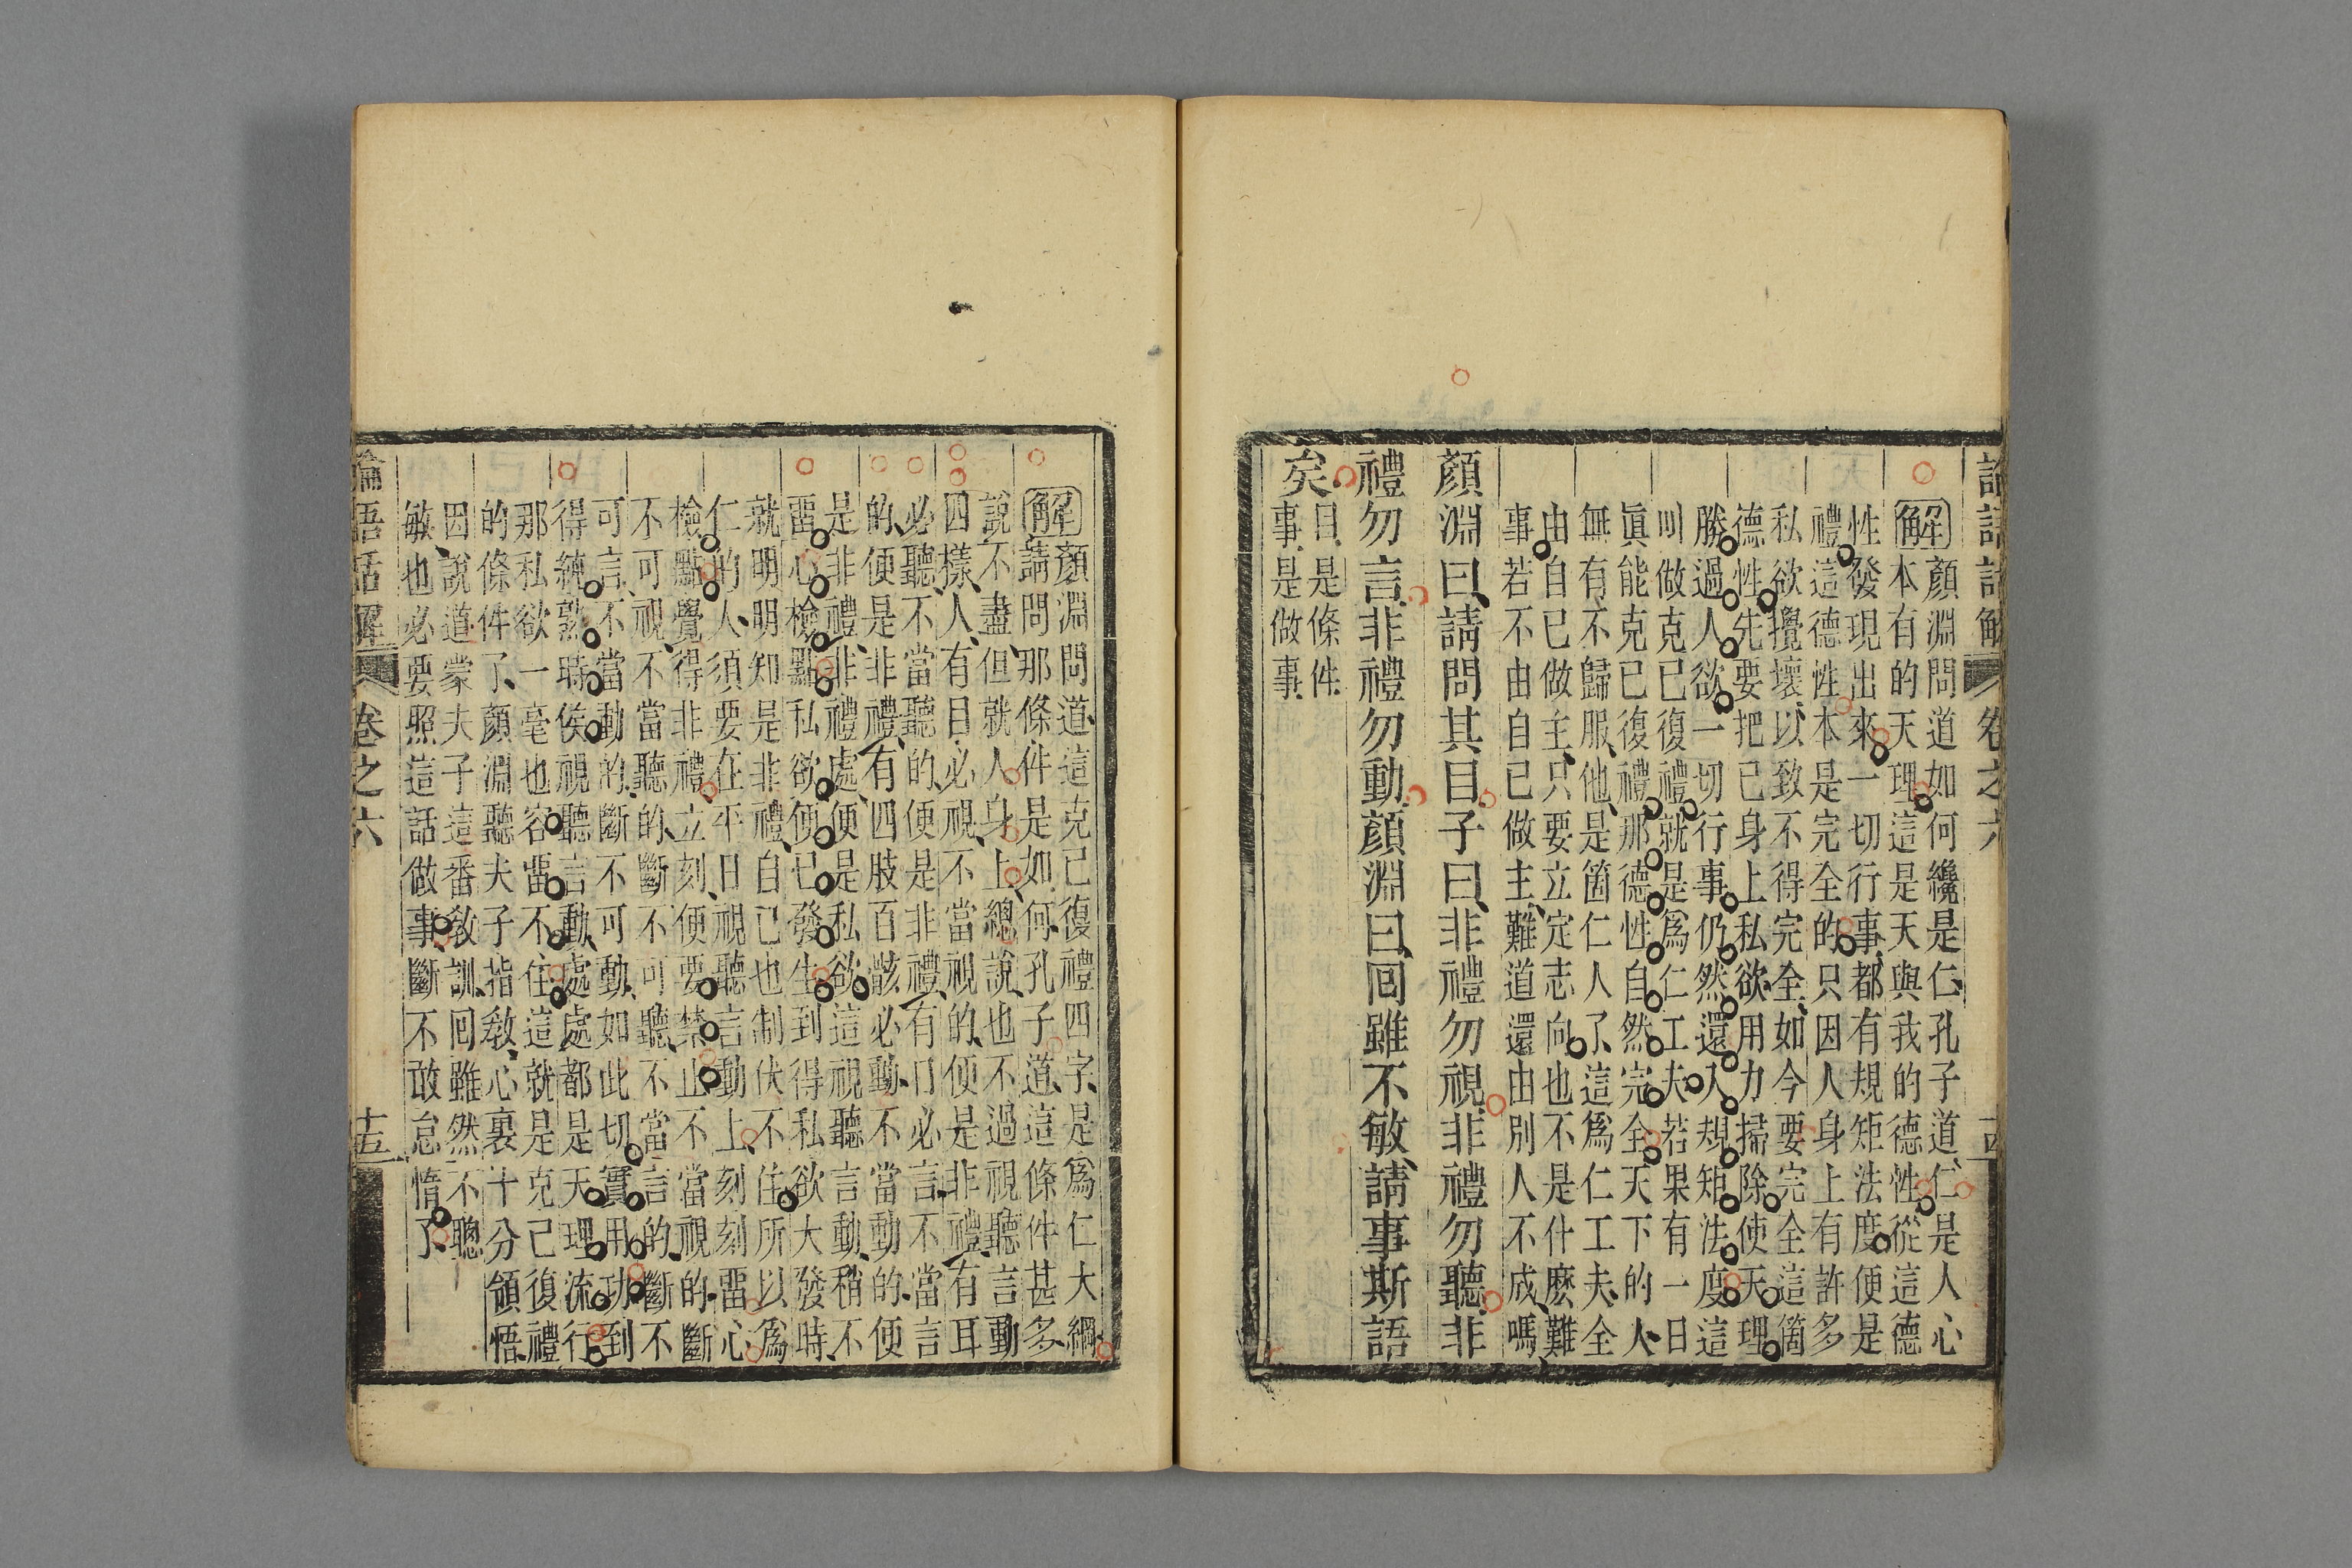 論語話解 卷之六 十四
解 顏淵問道如何纔是仁、孔子道、仁是人心
本有的天理這是天與我的德性從這德
性發現出來一切行事、都有規矩法度便是
禮這德性本是完全的只因人身上有許多
私欲攪壞、以致不得完全、如今要完全這箇
德性先要把已身上私欲、用力掃除使天理
勝過人欲一切行事仍然還入規矩法度這
叫做克已復禮就是爲仁工夫若果有一日
眞能克已復禮那德性自然完全天下的人、
無有不歸服他、是箇仁人了、這爲仁工夫、全
由自已做主、只要立定志向也不是什麽難
事若不由自已做主、難道還由別人不成嗎、
顏淵曰、請問其目、子曰、非禮勿視、非禮勿聽、非
禮勿言、非禮勿動、顏淵曰、囘雖不敏、請事斯語
矣、 目、是條件、
事、是做事、
解 顏淵問道、這克己復禮四字、是爲仁大綱、
請問那條件是如何、孔子道、這條件甚多、
說不盡、但就人身上總說、也不過視聽言動
四樣、人、有目、必視、不當視的、便是非禮、有耳
必聽、不當聽的、便是非禮、有口、必言、不當言
的、便是非禮、有四肢百骸、必動、不當動的、便
是非禮、非禮處、便是私欲、這視聽言動、稍不
畱心檢點、私欲便已發生、到得私欲大發時、
就明明知是非禮、自已也制伏不住、所以爲
仁的人、須要在平日視聽言動上、刻刻畱心
檢點、覺得非禮、立刻、便要禁止、不當視的、斷
不可視、不當聽的、斷不可聽、不當言的、斷不
可言、不當動的、斷不可動、如此切實用功、到
得純熟時候、視聽言動、處處都是天理流行、
那私欲一毫也容畱不住、這就是克己復禮
的條件了、顏淵聽夫子指教、心裏十分領悟、
因說道、蒙夫子這番敎訓、囘雖然不聰
敏也必要照這話做事、斷不敢怠惰了、
論語話解 卷之六 十五